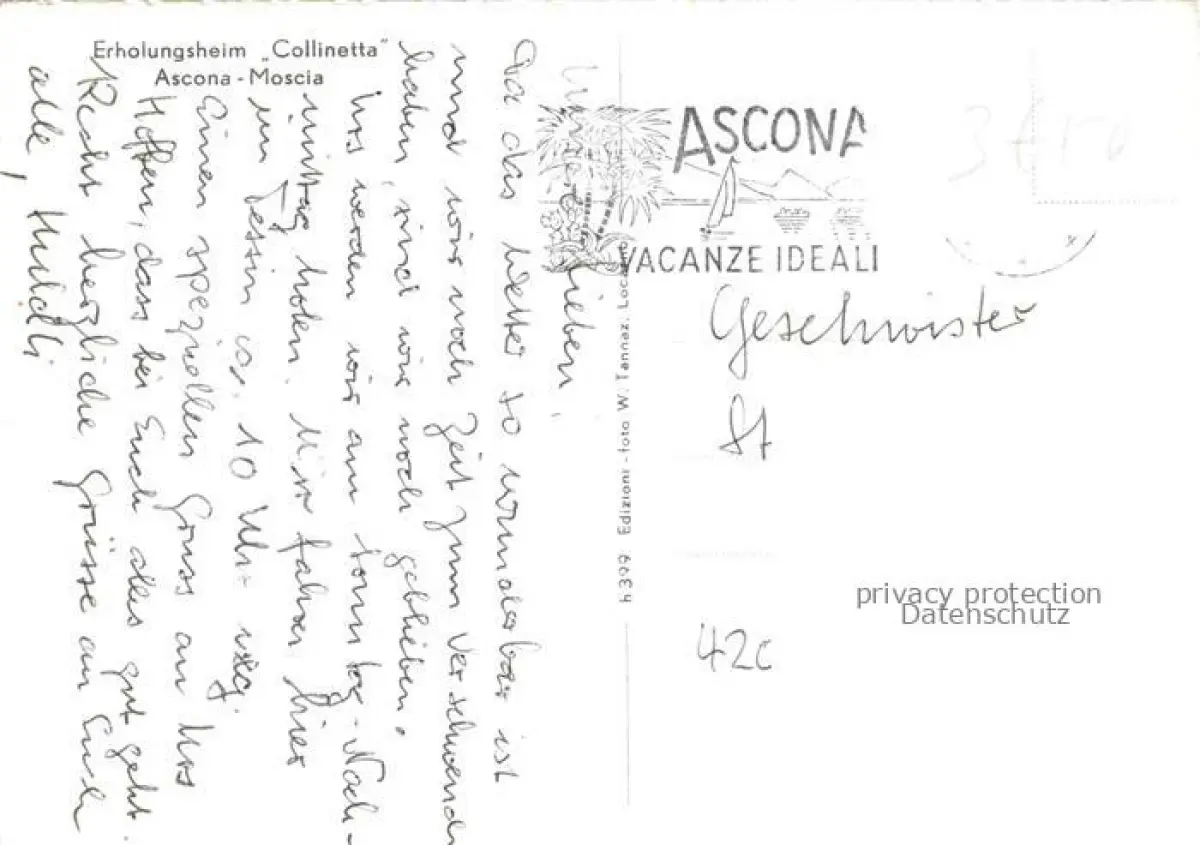 Erholungsheim „Collinetta"
Ascona - Moscia
Lieben,
Da das Wetter so wunderbar ist
und wir noch Zeit zum Verschwenden
haben, sind wir noch geblieben.
Urs werden wir am Sonntag-Nach-
mittag holen. Wir fahren hier
im Tessin ca. 10 Uhr weg.
Einen speziellen Gruss an Urs
Hoffen, dass bei Euch alles gut geht.
Recht herzliche Grüsse an Euch
alle,
h 399 Edizioni - foto W. Tannaz, Locarno
ASCONA
VACANZE IDEALI
Geschwister
St
42c
privacy protection
Datenschutz